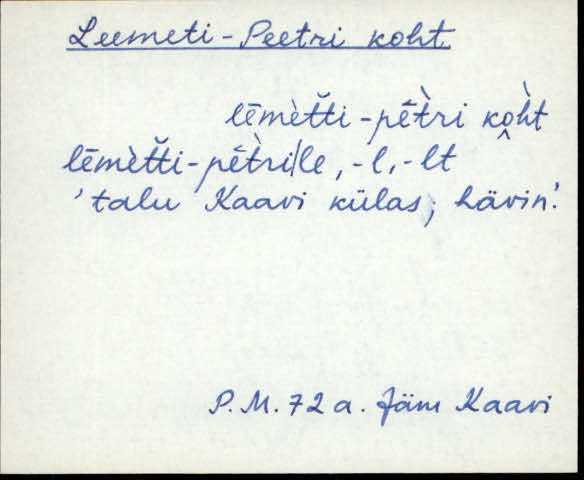 Leemeti-Peetri koht
lēmèt̆t̆i-pētri̬ koh̀t
lēmèt̆t̆i-pētri|le, -l, -lt
'talu Kaavi külas, hävin.'
P.M. 72 a. Jäm Kaavi